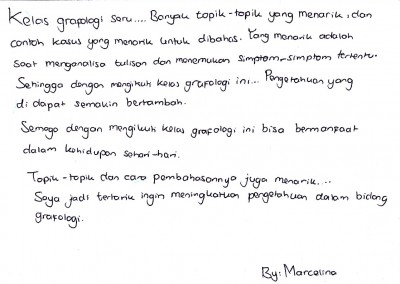 Kelas grafologi seru.... Banyak topik-topik yang menarik, dan
contoh kasus yang menarik untuk dibahas. Yang menarik adalah
saat menganalisa tulisan dan menemukan simptom-simptom tertentu.
Sehingga dengan mengikuti kelas grafologi ini... Pengetahuan yang
di dapat semakin bertambah.
Semoga dengan mengikuti kelas grafologi ini bisa bermanfaat
dalam kehidupan sehari-hari.
Topik-topik dan cara pembahasannya juga menarik...
Saya jadi tertarik ingin meningkatkan pengetahuan dalam bidang
grafologi.
By: Marcelina